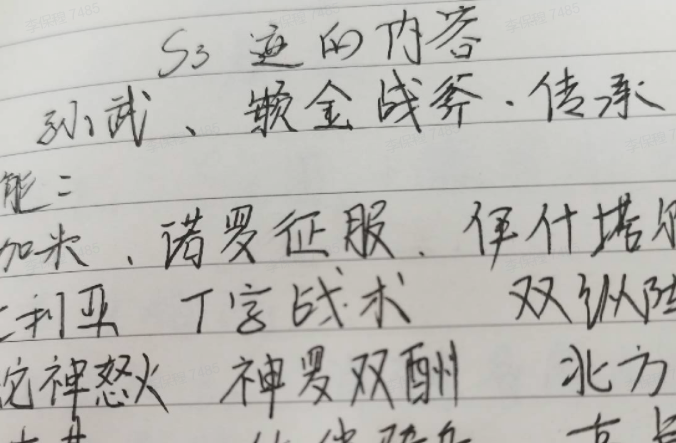 S3 的内容
孙武、镀金战斧、传承
能：
加米、诺曼征服、伊什塔尔
利亚 丁字战术 双纵阵
神怒火 神罗双酬 北方